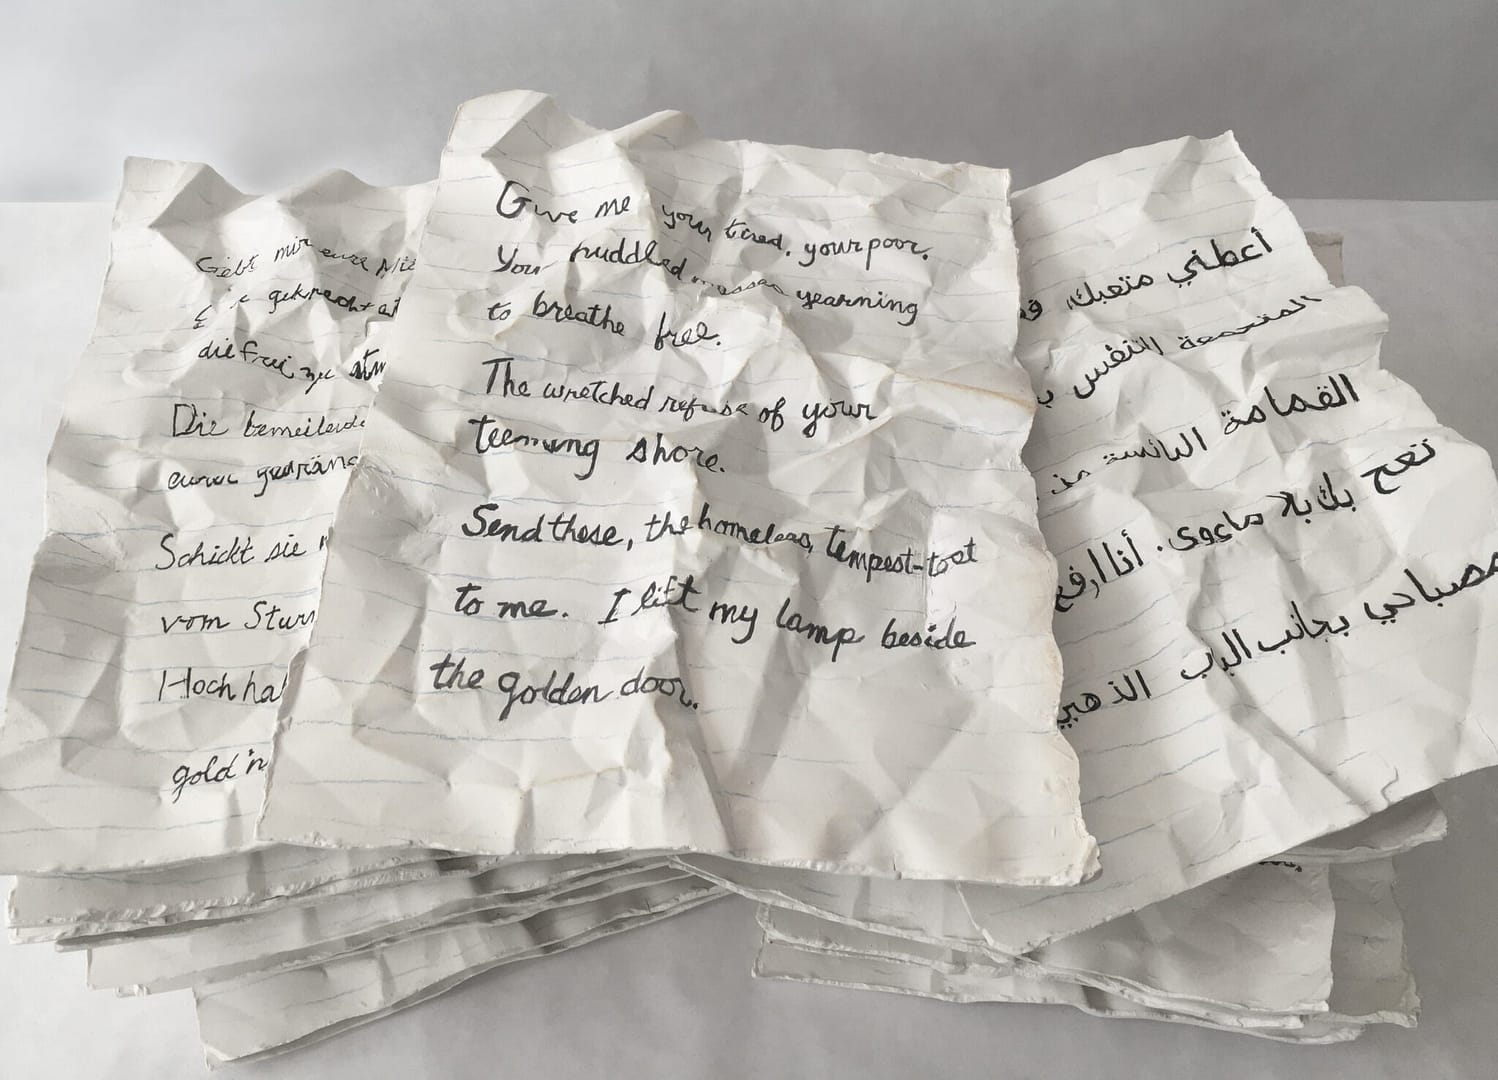 Gebt mir eure
geknecht
die frei zu
Die bemeilerde
eurer gedräng
Schickt sie
vom Stur
Hoch hal
gold'n
Give me your tired, your poor.
You huddled masses yearning
to breathe free.
The wretched refuse of your
teeming shore.
Send these, the homeless, tempest-tost
to me. I lift my lamp beside
the golden door.
أعطني متعبك،
المتجمعة التنفس ب
القمامة البائسة من
تعج بك بلا مأوى. أنا ارفع
مصباحي بجانب الباب الذهبي